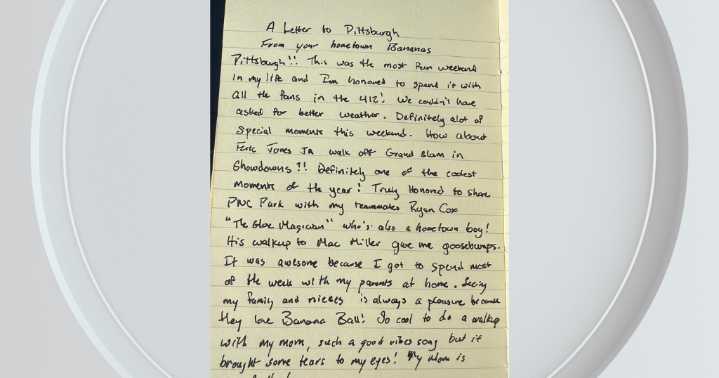 A Letter to Pittsburgh
From your hometown Bananas
Pittsburgh!! This was the most fun weekend
in my life and I'm honored to spend it with
all the fans in the 412! We couldn't have
asked for better weather. Definitely alot of
special moments this weekend. How about
Eric Jones Jr walk off Grand Slam in
Showdowns!! Definitely one of the coolest
moments of the year! Truly Honored to share
PNC Park with my teammates Ryan Cox
"The Glove Magician" who's also a hometown boy!
His walkup to Mac Miller gave me goosebumps.
It was awesome because I got to spend most
of the week with my parents at home. Seeing
my family and nieces is always a pleasure because
they love Banana Ball! So cool to do a walkup
with my mom, such a good vibes song but it
brought some tears to my eyes! My mom is